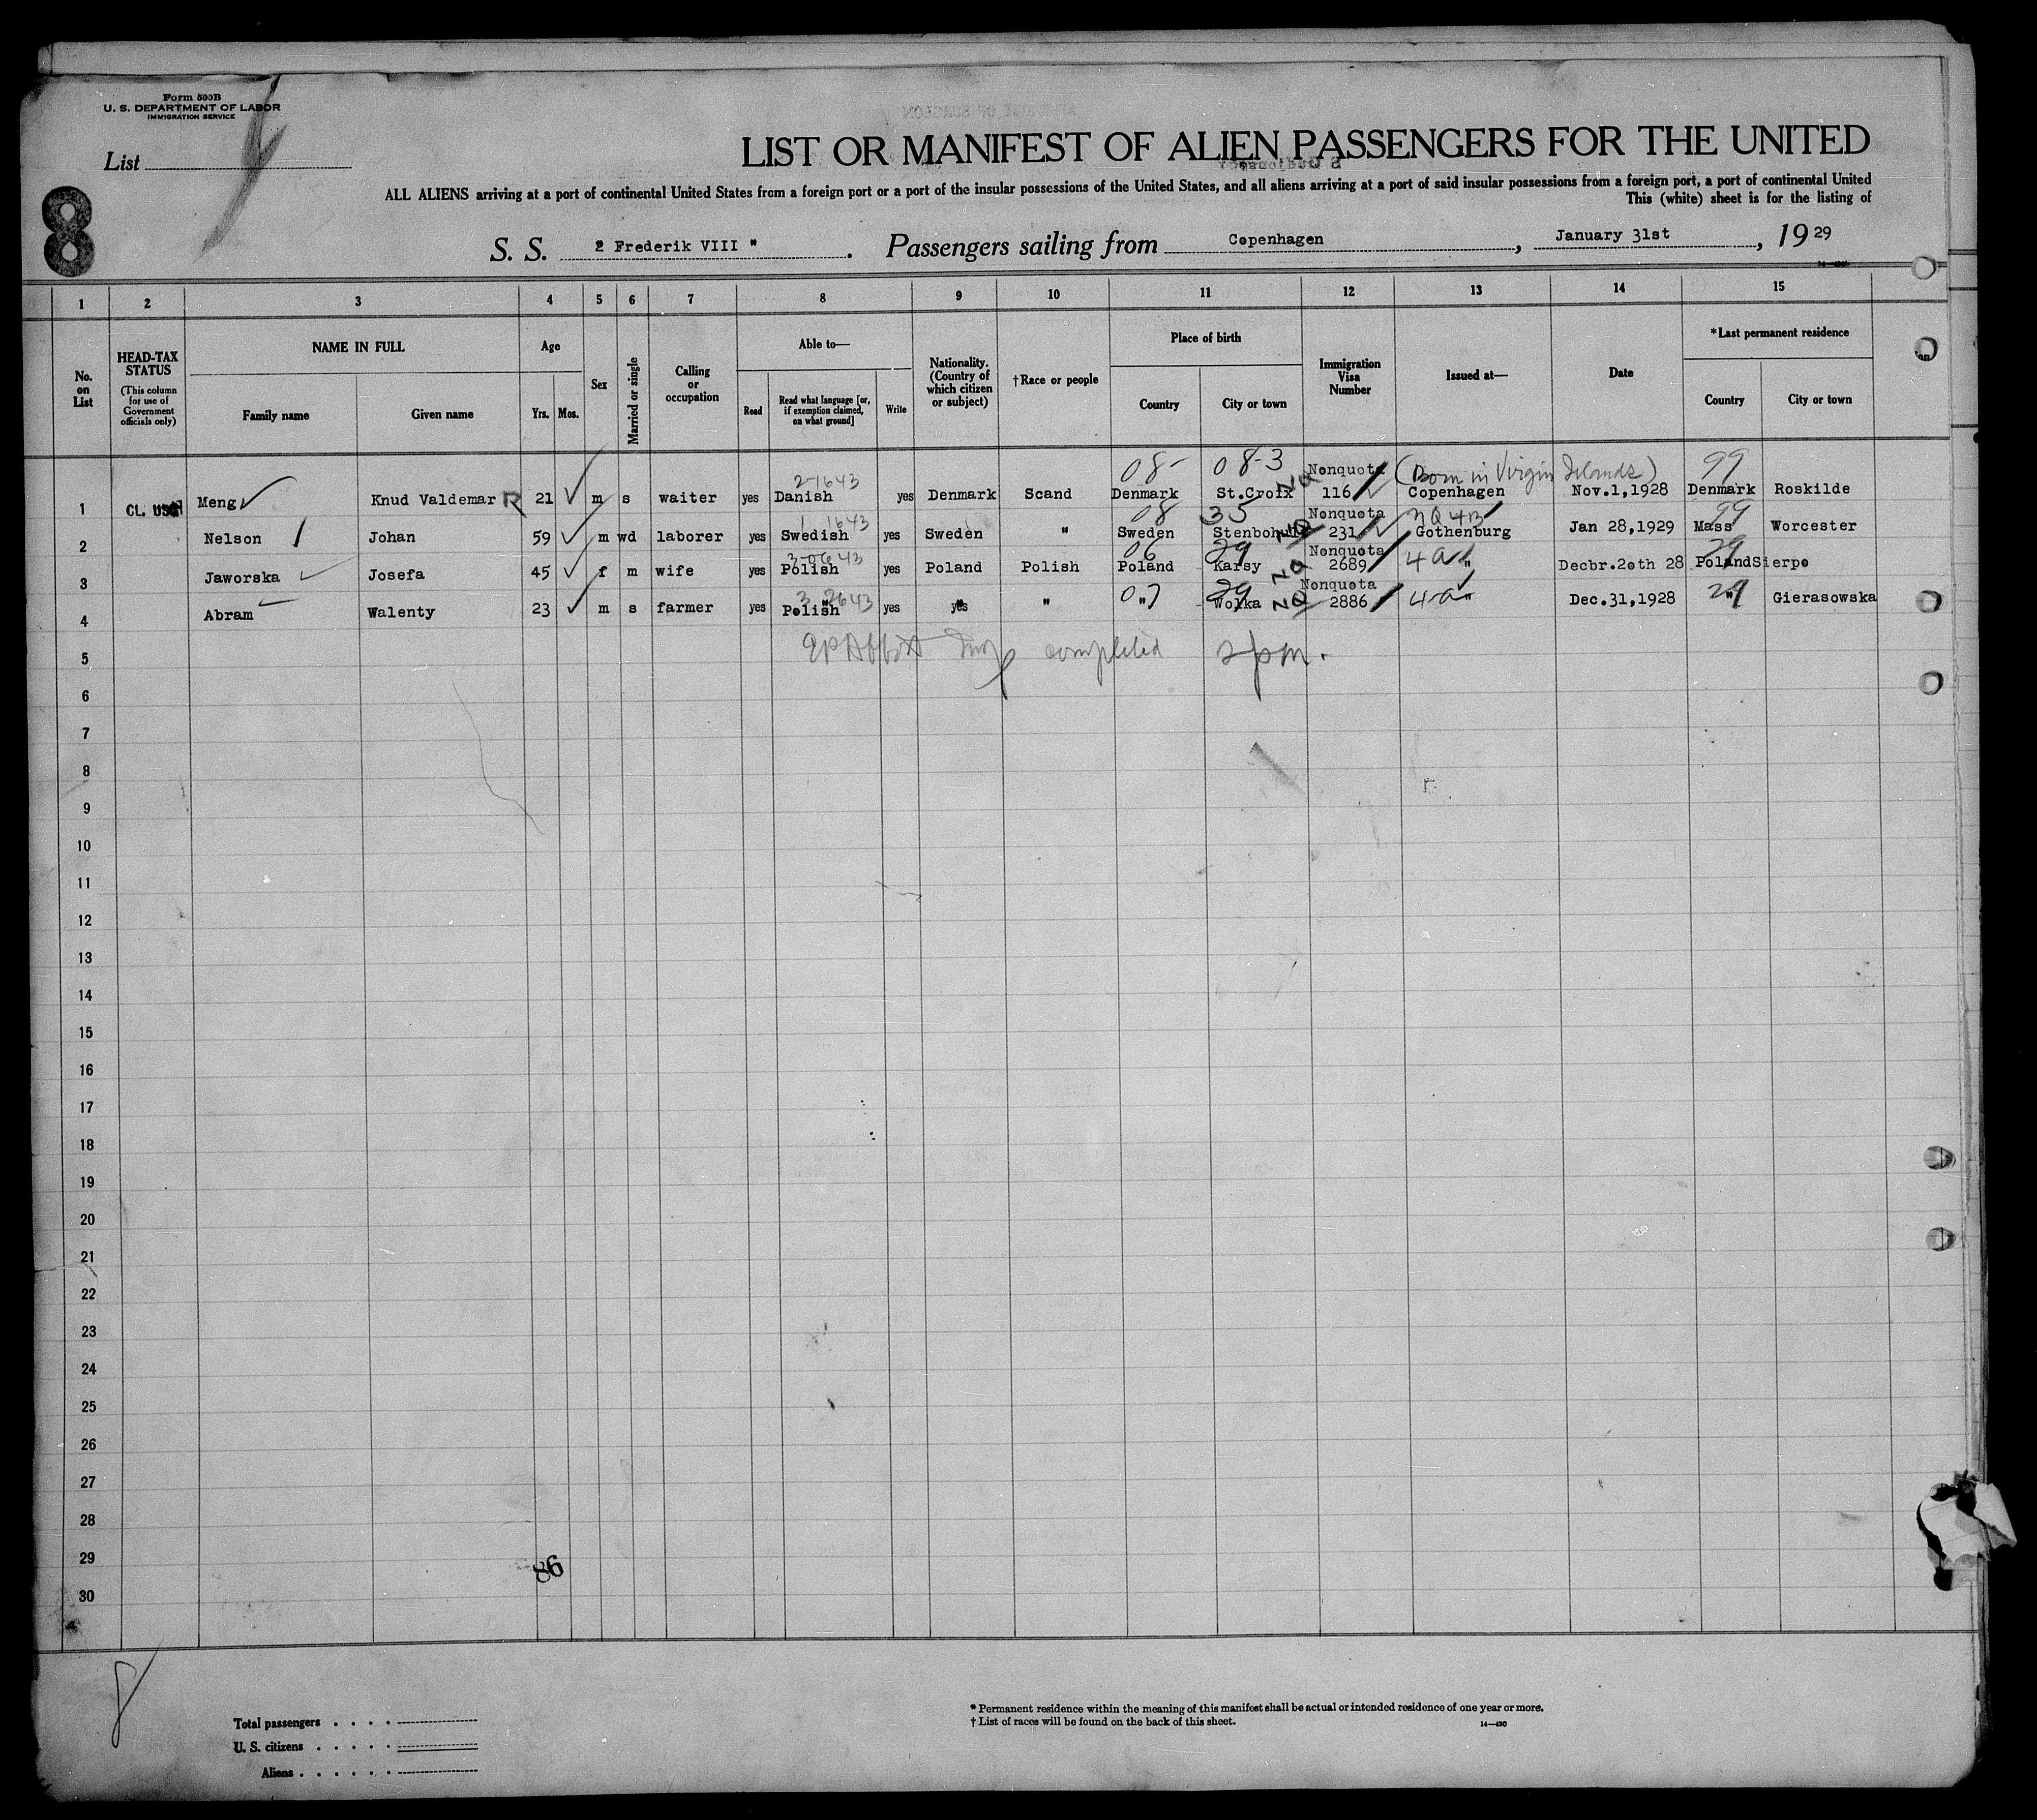 Form 500B
U. S. DEPARTMENT OF LABOR
IMMIGRATION SERVICE
List
8
LIST OR MANIFEST OF ALIEN PASSENGERS FOR THE UNITED
ALL ALIENS arriving at a port of continental United States from a foreign port or a port of the insular possessions of the United States, and all aliens arriving at a port of said insular possessions from a foreign port, a port of continental United
This (white) sheet is for the listing of
S. S. " Frederik VIII " . Passengers sailing from Copenhagen , January 31st , 19 29
1 2 3 4 5 6 7 8 9 10 11 12 13 14 15
No. on List
HEAD-TAX STATUS
(This column for use of Government officials only)
NAME IN FULL
Family name
Given name
Age
Yrs.
Mos.
Sex
Married or single
Calling or occupation
Able to—
Read
Read what language [or, if exemption claimed, on what ground]
Write
Nationality. (Country of which citizen or subject)
†Race or people
Place of birth
Country
City or town
Immigration Visa Number
Issued at—
Date
*Last permanent residence
Country
City or town
2-1643 08- 08-3 NQ Nonquota (Born in Virgin Islands) 99
1 Meng Knud Valdemar R 21 m s waiter yes Danish yes Denmark Scand Denmark St.Croix 116 Copenhagen Nov.1,1928 Denmark Roskilde
1643 08 35 Nonquota NQ 4B 99
2 Nelson Johan 59 m wd laborer yes Swedish yes Sweden " Sweden 231 Gothenburg Jan 28,1929 Mass Worcester
3-0643 06 29 NQ Nonquota 29
3 Jaworska Josefa 45 f m wife yes Polish yes Poland Polish Poland Karsy 2689 4a " Decbr.2oth 28 Poland Sierpo
3 2643 07 29 NQ Nonquota 29
4 Abram Walenty 23 m s farmer yes Polish yes " " " Wolka 2886 4-a " Dec.31,1928 " Gierasowska
5 EP Abbott Insp completed 2 pm.
6
7
8
9
10
11
12
13
14
15
16
17
18
19
20
21
22
23
24
25
26
27
28
29
86
30
8
Total passengers
U. S. citizens
Aliens
* Permanent residence within the meaning of this manifest shall be actual or intended residence of one year or more.
† List of races will be found on the back of this sheet.
14—430